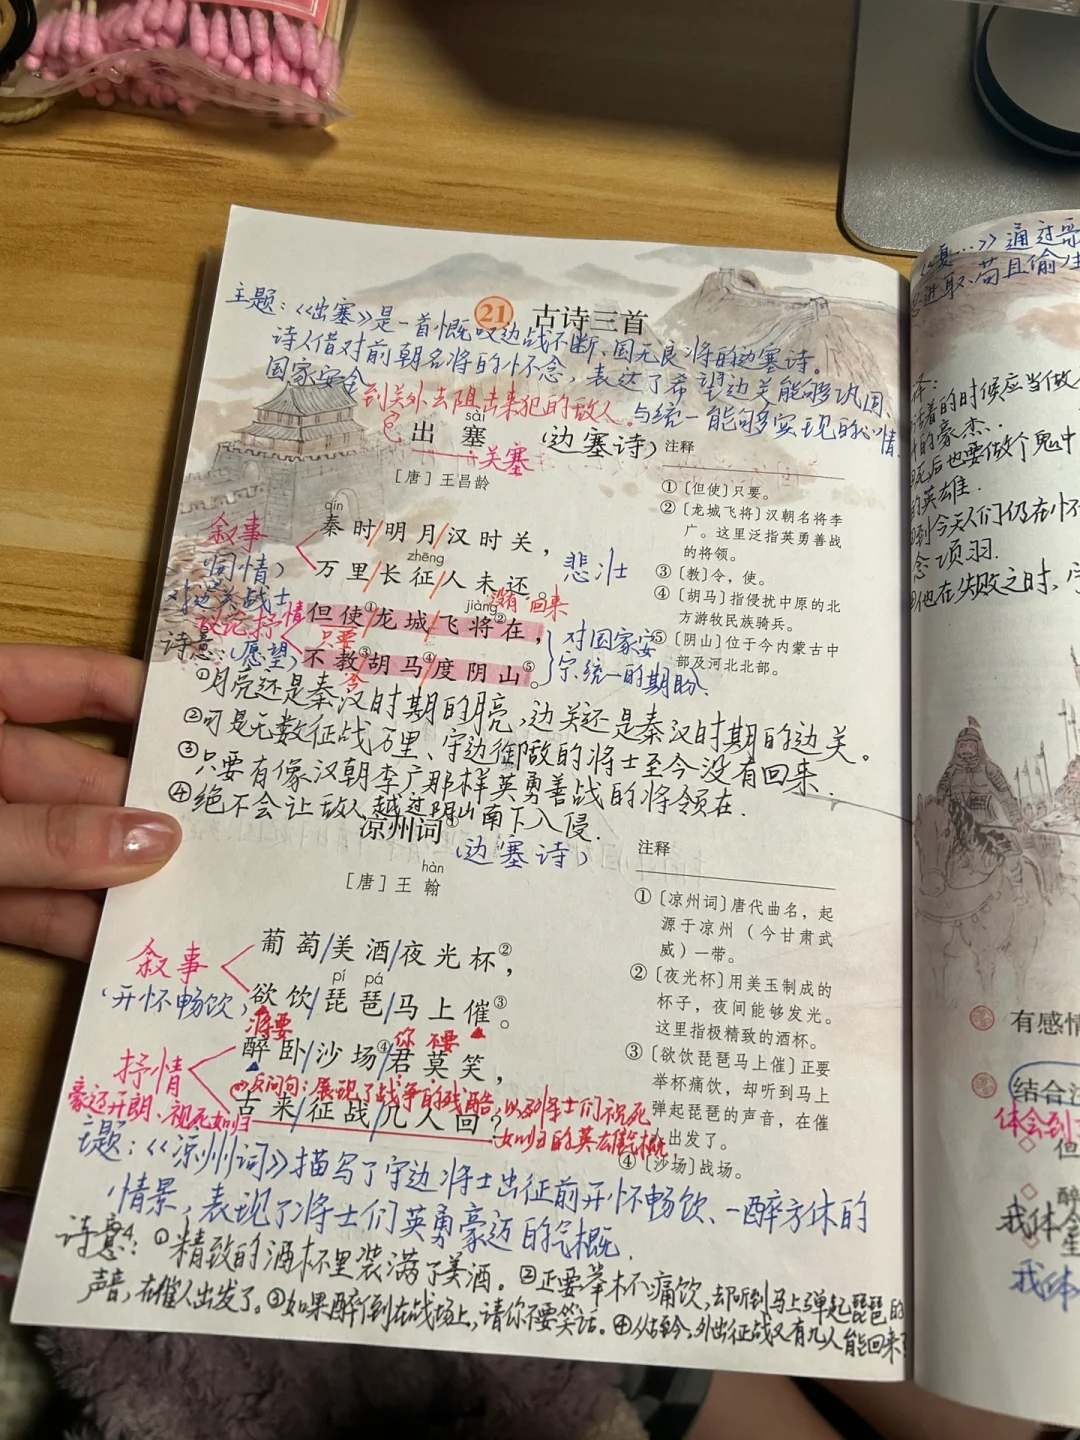 主题：《出塞》是一首慨叹边战不断、国无良将的边塞诗。
21 古诗三首
诗人借对前朝名将的怀念，表达了希望边关能够巩固、
国家安全
与统一能够实现的心情
到关外去阻击来犯的敌人。
sài
出 塞
(边塞诗)
关塞
［唐］王昌龄
叙事
qín
秦时/明月/汉时关，
zhēng
万里/长征/人未还。
(同情)
对边关战士
悲壮
没有 回来
抒情
jiàng
但使①/龙城/飞将②在，
只要
(愿望)
不教③/胡马④/度阴山⑤。
令
对国家安
宁、统一的期盼
诗意：
①月亮还是秦汉时期的月亮，边关还是秦汉时期的边关。
②可是无数征战万里、守边御敌的将士至今没有回来.
③只要有像汉朝李广那样英勇善战的将领在.
④绝不会让敌人越过阴山南下入侵.
注释
①〔但使〕只要。
②〔龙城飞将〕汉朝名将李
广。这里泛指英勇善战
的将领。
③〔教〕令，使。
④〔胡马〕指侵扰中原的北
方游牧民族骑兵。
⑤〔阴山〕位于今内蒙古中
部及河北北部。
凉州词①
(边塞诗)
hàn
［唐］王 翰
叙事
开怀畅饮
葡萄/美酒/夜光杯②，
pí pá
欲饮/琵琶/马上催③。
将要
你 不要
抒情
豪迈开朗、视死如归
醉卧/沙场④/君莫笑，
反问句：展现了战争的残酷，以及将士们视死
如归的英雄气概
古来/征战/几人回？
主题：《凉州词》描写了守边将士出征前开怀畅饮、一醉方休的
情景，表现了将士们英勇豪迈的气概.
诗意：①精致的酒杯里装满了美酒。②正要举杯痛饮，却听到马上弹起琵琶的
声音，在催人出发了。③如果醉倒在战场上，请你不要笑话。④从古至今，外出征战又有几人能回来？
注释
①〔凉州词〕唐代曲名，起
源于凉州（今甘肃武
威）一带。
②〔夜光杯〕用美玉制成的
杯子，夜间能够发光。
这里指极精致的酒杯。
③〔欲饮琵琶马上催〕正要
举杯痛饮，却听到马上
弹起琵琶的声音，在催
人出发了。
④〔沙场〕战场。
《夏…》通过
进取、苟且偷生
的时候应当做
的豪杰.
死后也要做个鬼中
的英雄.
到今天人们仍在怀
念项羽.
他在失败之时，
有感情
结合注
体会到
但
醉
我体会
我体